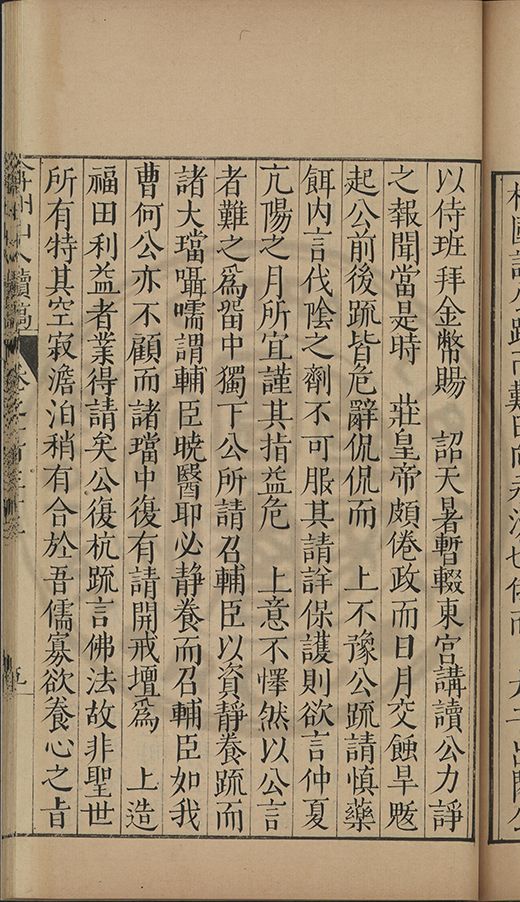 以侍班拜金幣賜　詔天暑暫輟東宮講讀公力諍
之報聞當是時　莊皇帝頗倦政而日月交蝕旱魃
起公前後疏皆危辭侃侃而　上不豫公疏請慎藥
餌内言伐陰之劑不可服其請詳保護則欲言仲夏
亢陽之月所宜謹其指益危　上意不懌然以公言
者難之爲畱中獨下公所請召輔臣以資靜養疏而
諸大璫囁嚅謂輔臣曉醫耶必靜養而召輔臣如我
曹何公亦不顧而諸璫中復有請開戒壇爲　上造
福田利益者業得請矣公復抗疏言佛法故非聖世
所有特其空寂澹泊稍有合於吾儒寡欲養心之旨
弇州山人續稿　卷之一百三十